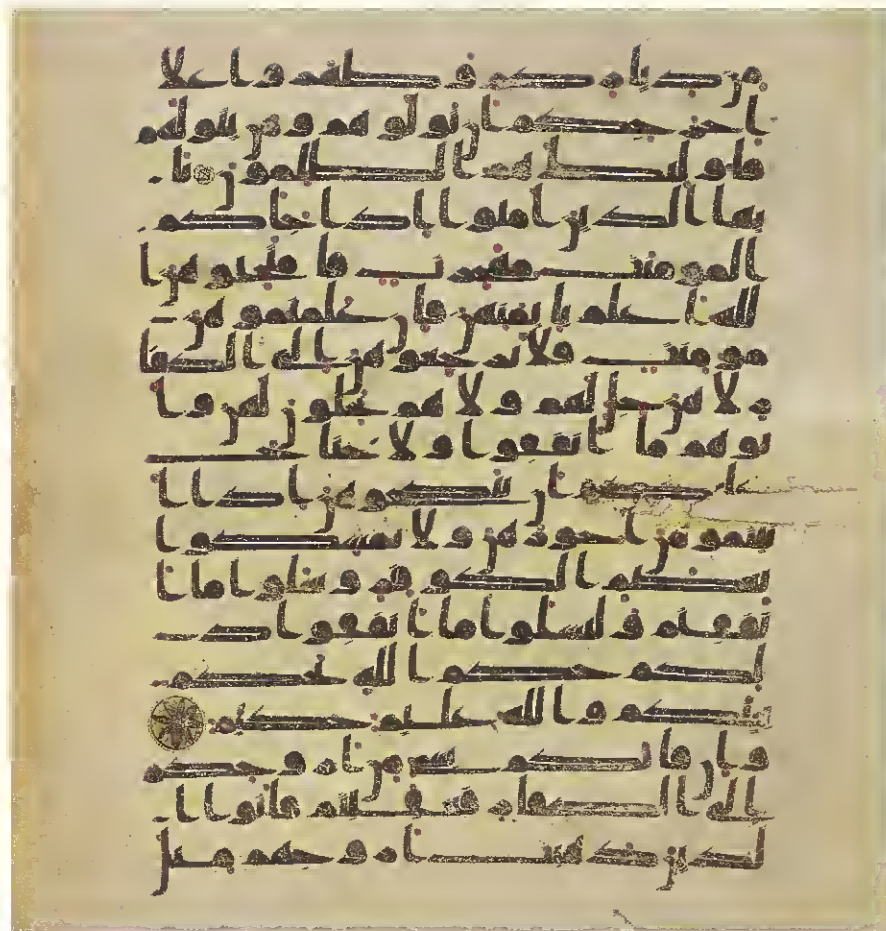 من ديركم وظهروا علا
اخرجكم ان تولوهم ومن يتولهم
فاوليك هم الظلمون يا
يها الذين امنوا اذا جاكم
المومنت مهجرت فامتحنوهن ا
لله اعلم بايمنهن فان علمتموهن
مومنت فلا ترجعوهن الى الكفا
ر لا هن حل لهم ولا هم يحلون لهن وا
توهم ما انفقوا ولا جناح
عليكم ان تنكحوهن اذا ا
تيتموهن اجورهن ولا تمسكوا
بعصم الكوافر وسلوا ما ا
نفقتم وليسلوا ما انفقوا ذ
لكم حكم الله يحكم
بينكم والله عليم حكيم
وان فاتكم شى من ازوجكم
الى الكفار فعقبتم فاتوا ا
لذين ذهبت ازوجهم مثل